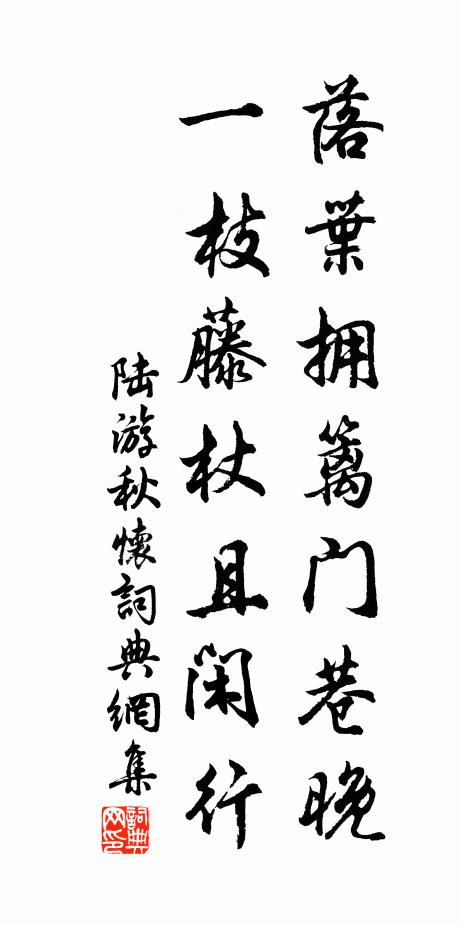 落葉拥籬门巷晚
一枝藤杖且闲行
陆游秋懷詞典網集
詞典网印